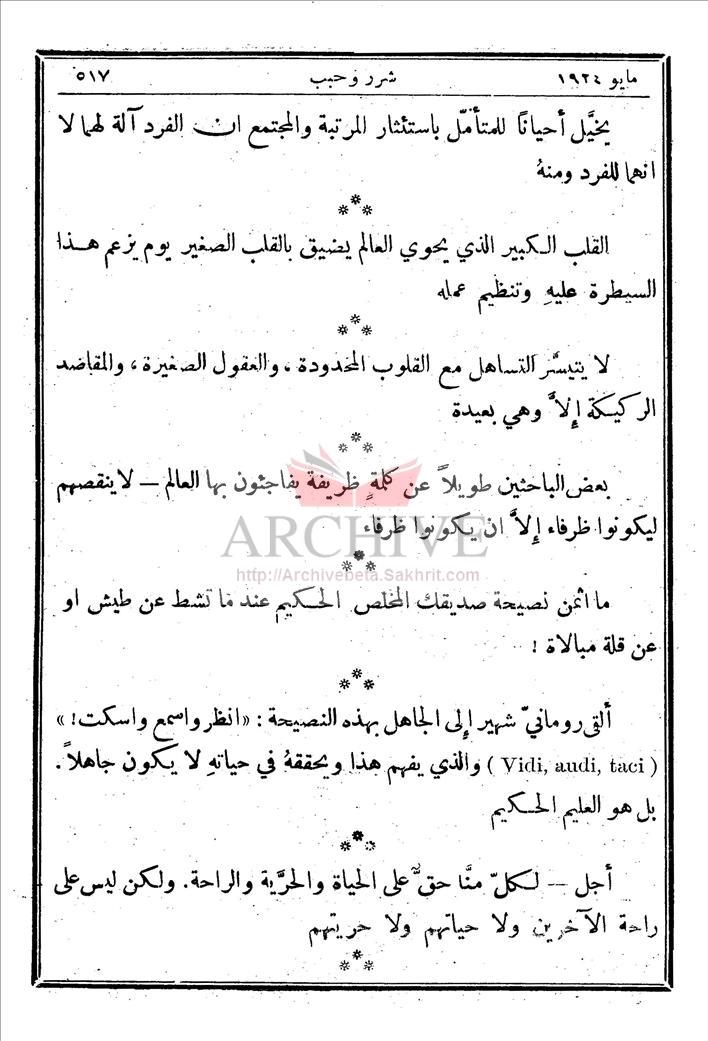 مايو ١٩٢٤ شرر وحبب ٥١٧
يخيَّل أحيانًا للمتأمّل باستئثار المرتبة والمجتمع ان الفرد آلة لهما لا
انهما للفرد ومنهُ
القلب الكبير الذي يحوي العالم يضيق بالقلب الصغير يوم يزعم هذا
السيطرة عليهِ وتنظيم عمله
لا يتيسَّر التساهل مع القلوب المحدودة ، والعقول الصغيرة ، والمقاصد
الركيكة إلاَّ وهي بعيدة
بعض الباحثين طويلاً عن كلمةٍ ظريفة يفاجئون بها العالم — لا ينقصهم
ليكونوا ظرفاء إلاَّ ان يكونوا ظرفاء
ARCHIVE
http://Archivebeta.Sakhrit.com
ما اثمن نصيحة صديقك المخلص الحكيم عند ما تشط عن طيش او
عن قلة مبالاة !
ألقى رومانيّ شهير إلى الجاهل بهذه النصيحة : «انظر واسمع واسكت! »
( Vidi, audi, taci ) والذي يفهم هذا ويحققهُ في حياتهِ لا يكون جاهلاً .
بل هو العليم الحكيم
أجل — لكلّ منَّا حقٌّ على الحياة والحرَّية والراحة. ولكن ليس على
راحة الآخرين ولا حياتهم ولا حريتهم